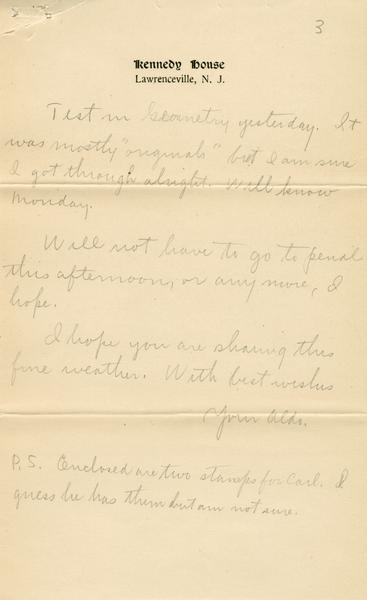 3
Kennedy House
Lawrenceville, N. J.
Test in Geometry yesterday. It
was mostly "originals" but I am sure
I got through alright. Will know
Monday.
Will not have to go to penal
this afternoon, or any more, I
hope.
I hope you are sharing this
fine weather. With best wishes
Your Aldo.
P.S. Enclosed are two stamps for Carl. I
guess he has them but am not sure.